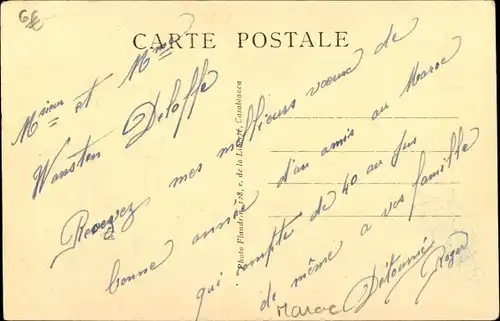 CARTE POSTALE
Msieur et Mme
Wansten Deloffe
Recevez, mes meilleurs vœux de
bonne année d'un amis au Maroc
qui compte de 40 au jus
de même a vos famille
Roger
Maroc
Photo Flandrin, r. de la Liberté, Casablanca